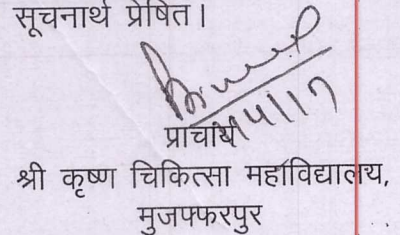 सूचनार्थ प्रेषित।
प्राचार्य
श्री कृष्ण चिकित्सा महाविद्यालय,
मुजफ्फरपुर